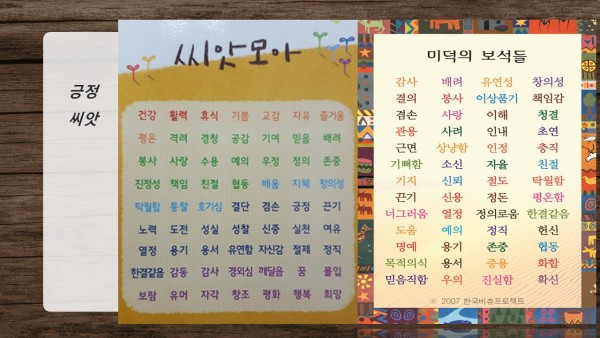 긍정
씨앗
씨앗모아
건강 활력 휴식 기쁨 교감 자유 즐거움
평온 격려 경청 공감 기여 믿음 배려
봉사 사랑 수용 예의 우정 정의 존중
진정성 책임 친절 협동 배움 지혜 창의성
탁월함 통찰 호기심 결단 겸손 긍정 끈기
노력 도전 성실 성찰 신중 실천 여유
열정 용기 용서 유연함 자신감 절제 정직
한결같음 감동 감사 경외심 깨달음 꿈 몰입
보람 유머 자각 창조 평화 행복 희망
미덕의 보석들
감사 배려 유연성 창의성
결의 봉사 이상품기 책임감
겸손 사랑 이해 청결
관용 사려 인내 초연
근면 상냥함 인정 충직
기뻐함 소신 자율 친절
기지 신뢰 절도 탁월함
끈기 신용 정돈 평온함
너그러움 열정 정의로움 한결같음
도움 예의 정직 헌신
명예 용기 존중 협동
목적의식 용서 중용 화합
믿음직함 우의 진실함 확신
ⓒ 2007 한국버츄프로젝트